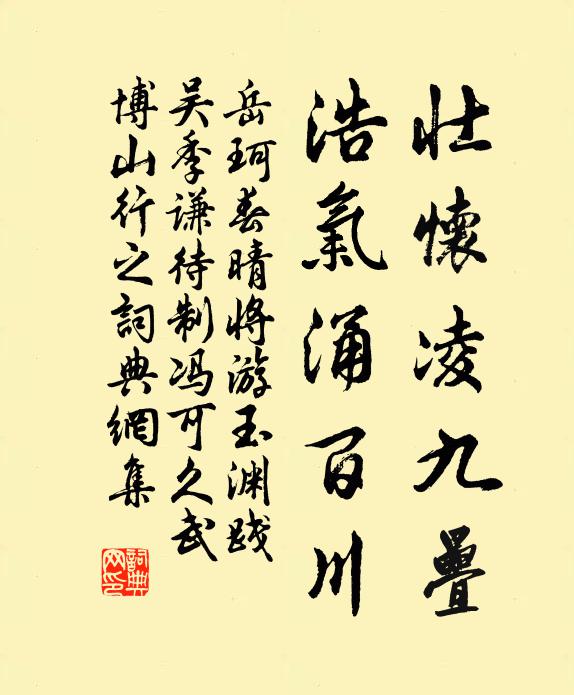 壮懷凌九疊
浩氣涌百川
岳珂春晴將游玉淵踐
吴季謙待制馮可久武
博山行之詞典網集
詞典网印